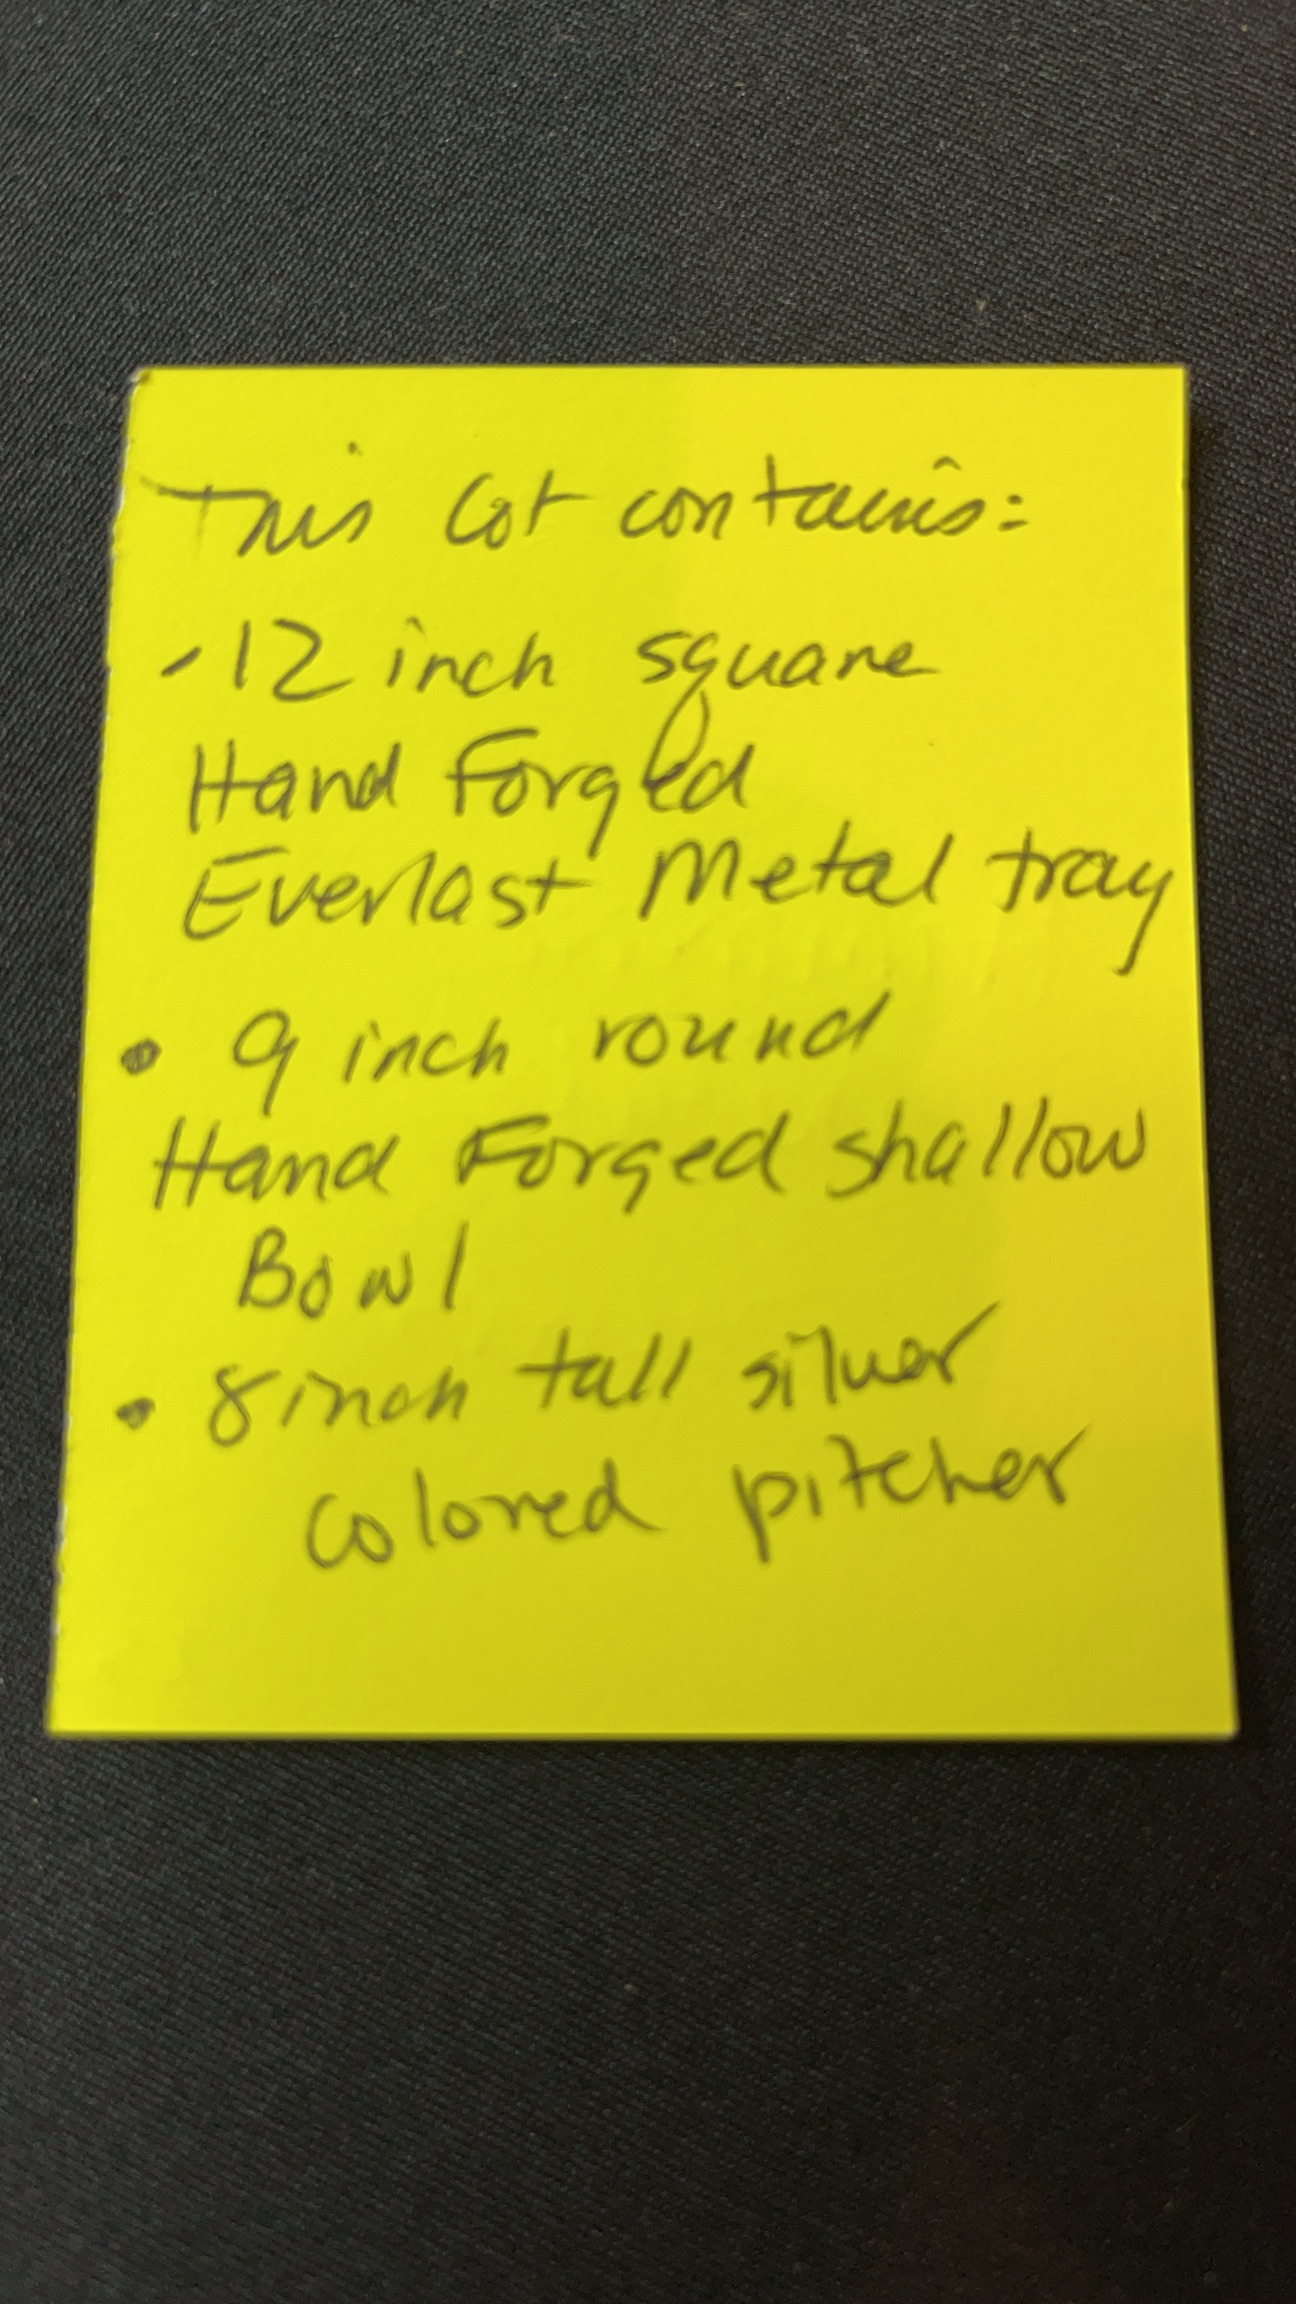 This Lot contains:
- 12 inch square
Hand Forged
Everlast Metal tray
• 9 inch round
Hand Forged shallow
Bowl
• 8 inch tall silver
colored pitcher